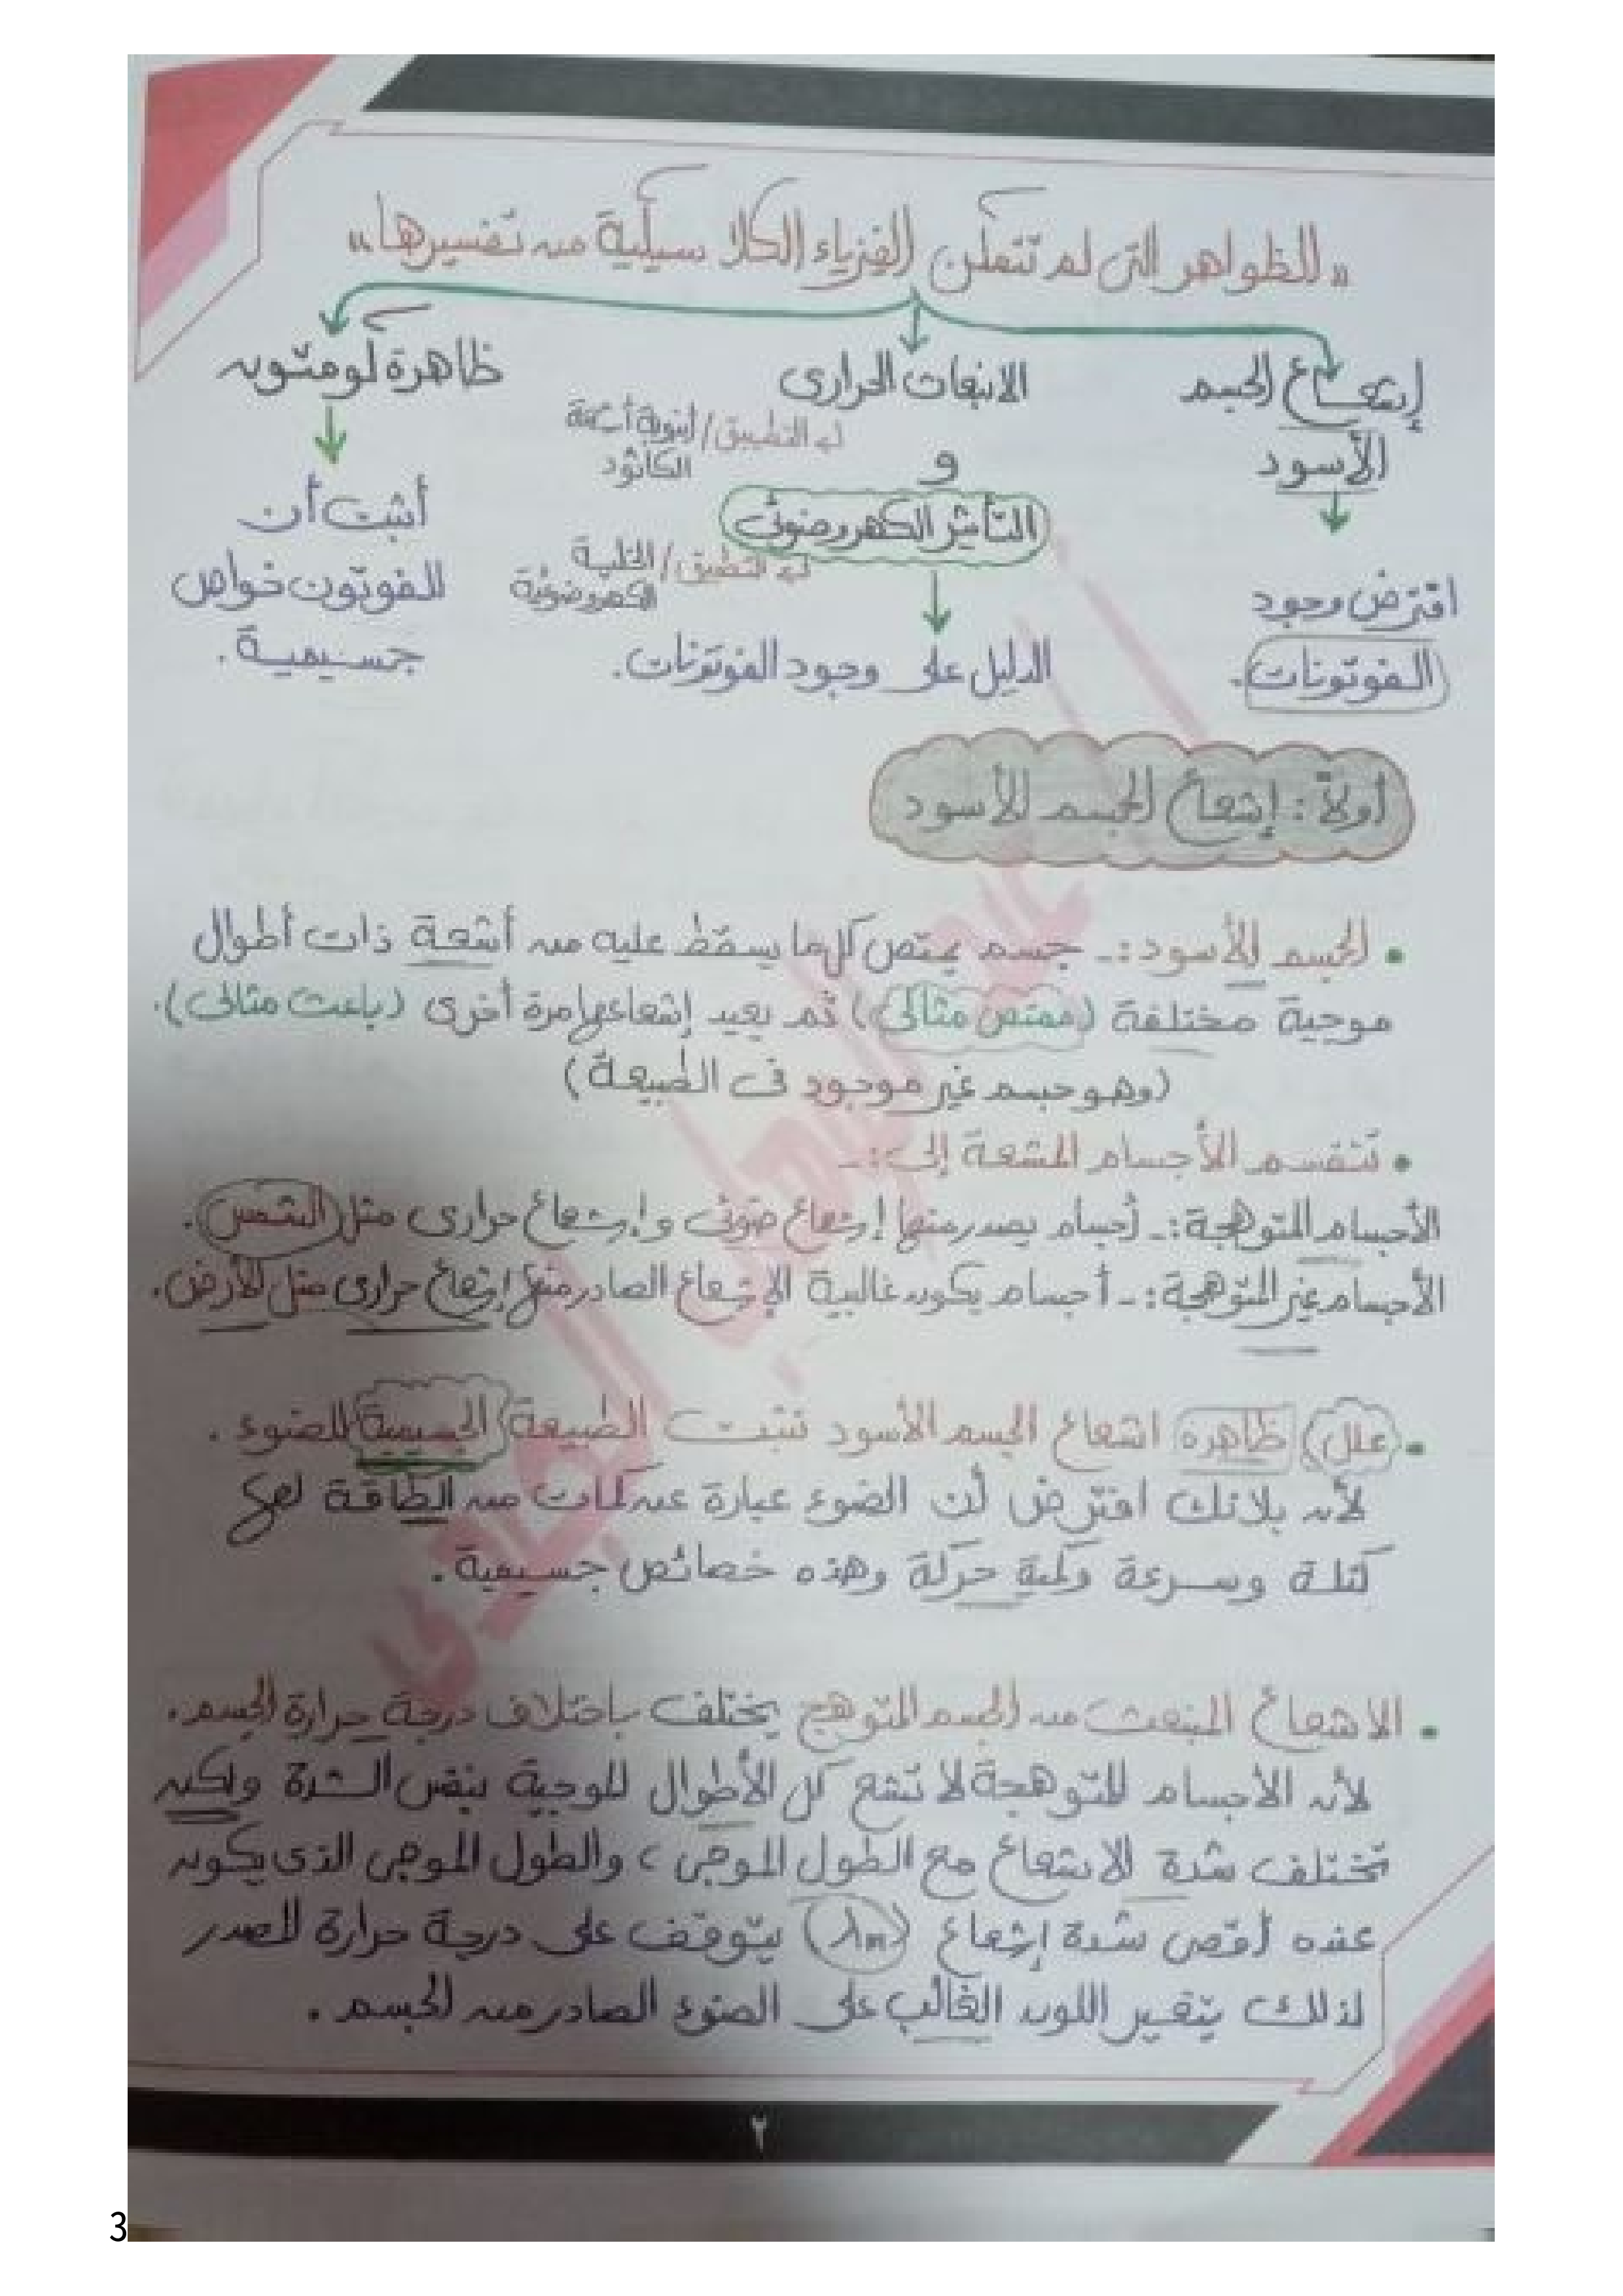 "الظواهر التى لم تتمكن الفيزياء الكلاسيكية من تفسيرها"
إشعاع الجسم
الأسود
افترض وجود
الفوتونات.
الانبعاث الحرارى
التطبيق / أنبوبة أشعة
الكاثود
و
التأثير الكهروضوئى
التطبيق / الخلية
الكهروضوئية
الدليل على وجود الفوتونات.
ظاهرة كومتون
أثبت أن
للفوتون خواص
جسيمية.
أولاً : إشعاع الجسم الأسود
• الجسم الأسود :- جسم يمتص كل ما يسقط عليه من أشعة ذات أطوال
موجية مختلفة (ممتص مثالى) ثم يعيد إشعاعها مرة أخرى (باعث مثالى).
(وهو جسم غير موجود فى الطبيعة)
• تنقسم الأجسام المشعة إلى :-
الأجسام المتوهجة :- أجسام يصدر منها إشعاع ضوئى وإشعاع حرارى مثل الشمس.
الأجسام غير المتوهجة :- أجسام يكون غالبية الإشعاع الصادر منها إشعاع حرارى مثل الأرض.
• علل ظاهرة اشعاع الجسم الأسود تثبت الطبيعة الجسيمية للضوء.
لأن بلانك افترض أن الضوء عبارة عن كمات من الطاقة لها
كتلة وسرعة وكمية حركة وهذه خصائص جسيمية.
• الاشعاع المنبعث من الجسم المتوهج يختلف باختلاف درجة حرارة الجسم.
لأن الأجسام المتوهجة لا تشع كل الأطوال الموجية بنفس الشدة ولكن
تختلف شدة الاشعاع مع الطول الموجى، والطول الموجى الذى يكون
عنده أقصى شدة إشعاع (λm) يتوقف على درجة حرارة المصدر
لذلك يتغير اللون الغالب على الضوء الصادر من الجسم.
٢
3